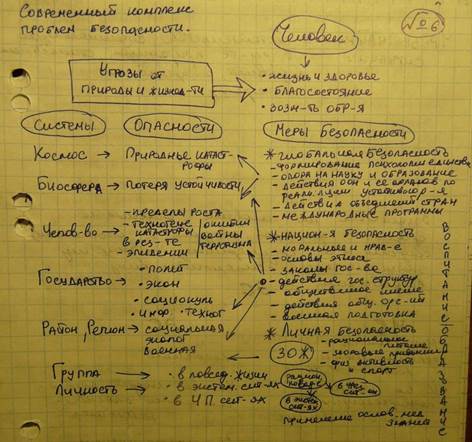 Современный комплекс
проблем безопасности.
№6
Человек
Угрозы от
природы и жизнед-ти
• жизнь и здоровье
• благосостояние
• возм-ть обр-я
Системы
Опасности
Меры Безопасности
Космос → Природные катаст-
рофы
Биосфера → Потеря устойчивости
Челов-во →
- пределы роста
- техноген
катастрофы
в рез-те
- эпидемии
ошибки
войны
терроризма
Государство →
• полит
• экон
• социокуль
• инфор. технол
Район, Регион →
- социальная
эколог
военная
Группа → • в повсед. жизни
Личность → • в экстем. сит-ях
• в Ч.П. сит-ях
* глобальная безопасность
- формирование психологии единства
- опора на науку и образование
- действия ООН и её органов по
реализации устойчивого р-я
- действия объединений стран
- международные программы
* национ-я безопасность
- моральные и нрав-е
- основы этноса
- законы гос-ва
- действия гос. структур
- общественное мнение
- действия общ. орг-ий
- военная подготовка
* Личная безопасность
ЗОЖ
- рациональное
питание
- здоровые привычки
- физ активность
и спорт
в жизн.
сит-ях
применение основ. мед
знаний
ВОСПИТАНИЕ
ОБРАЗОВАНИЕ